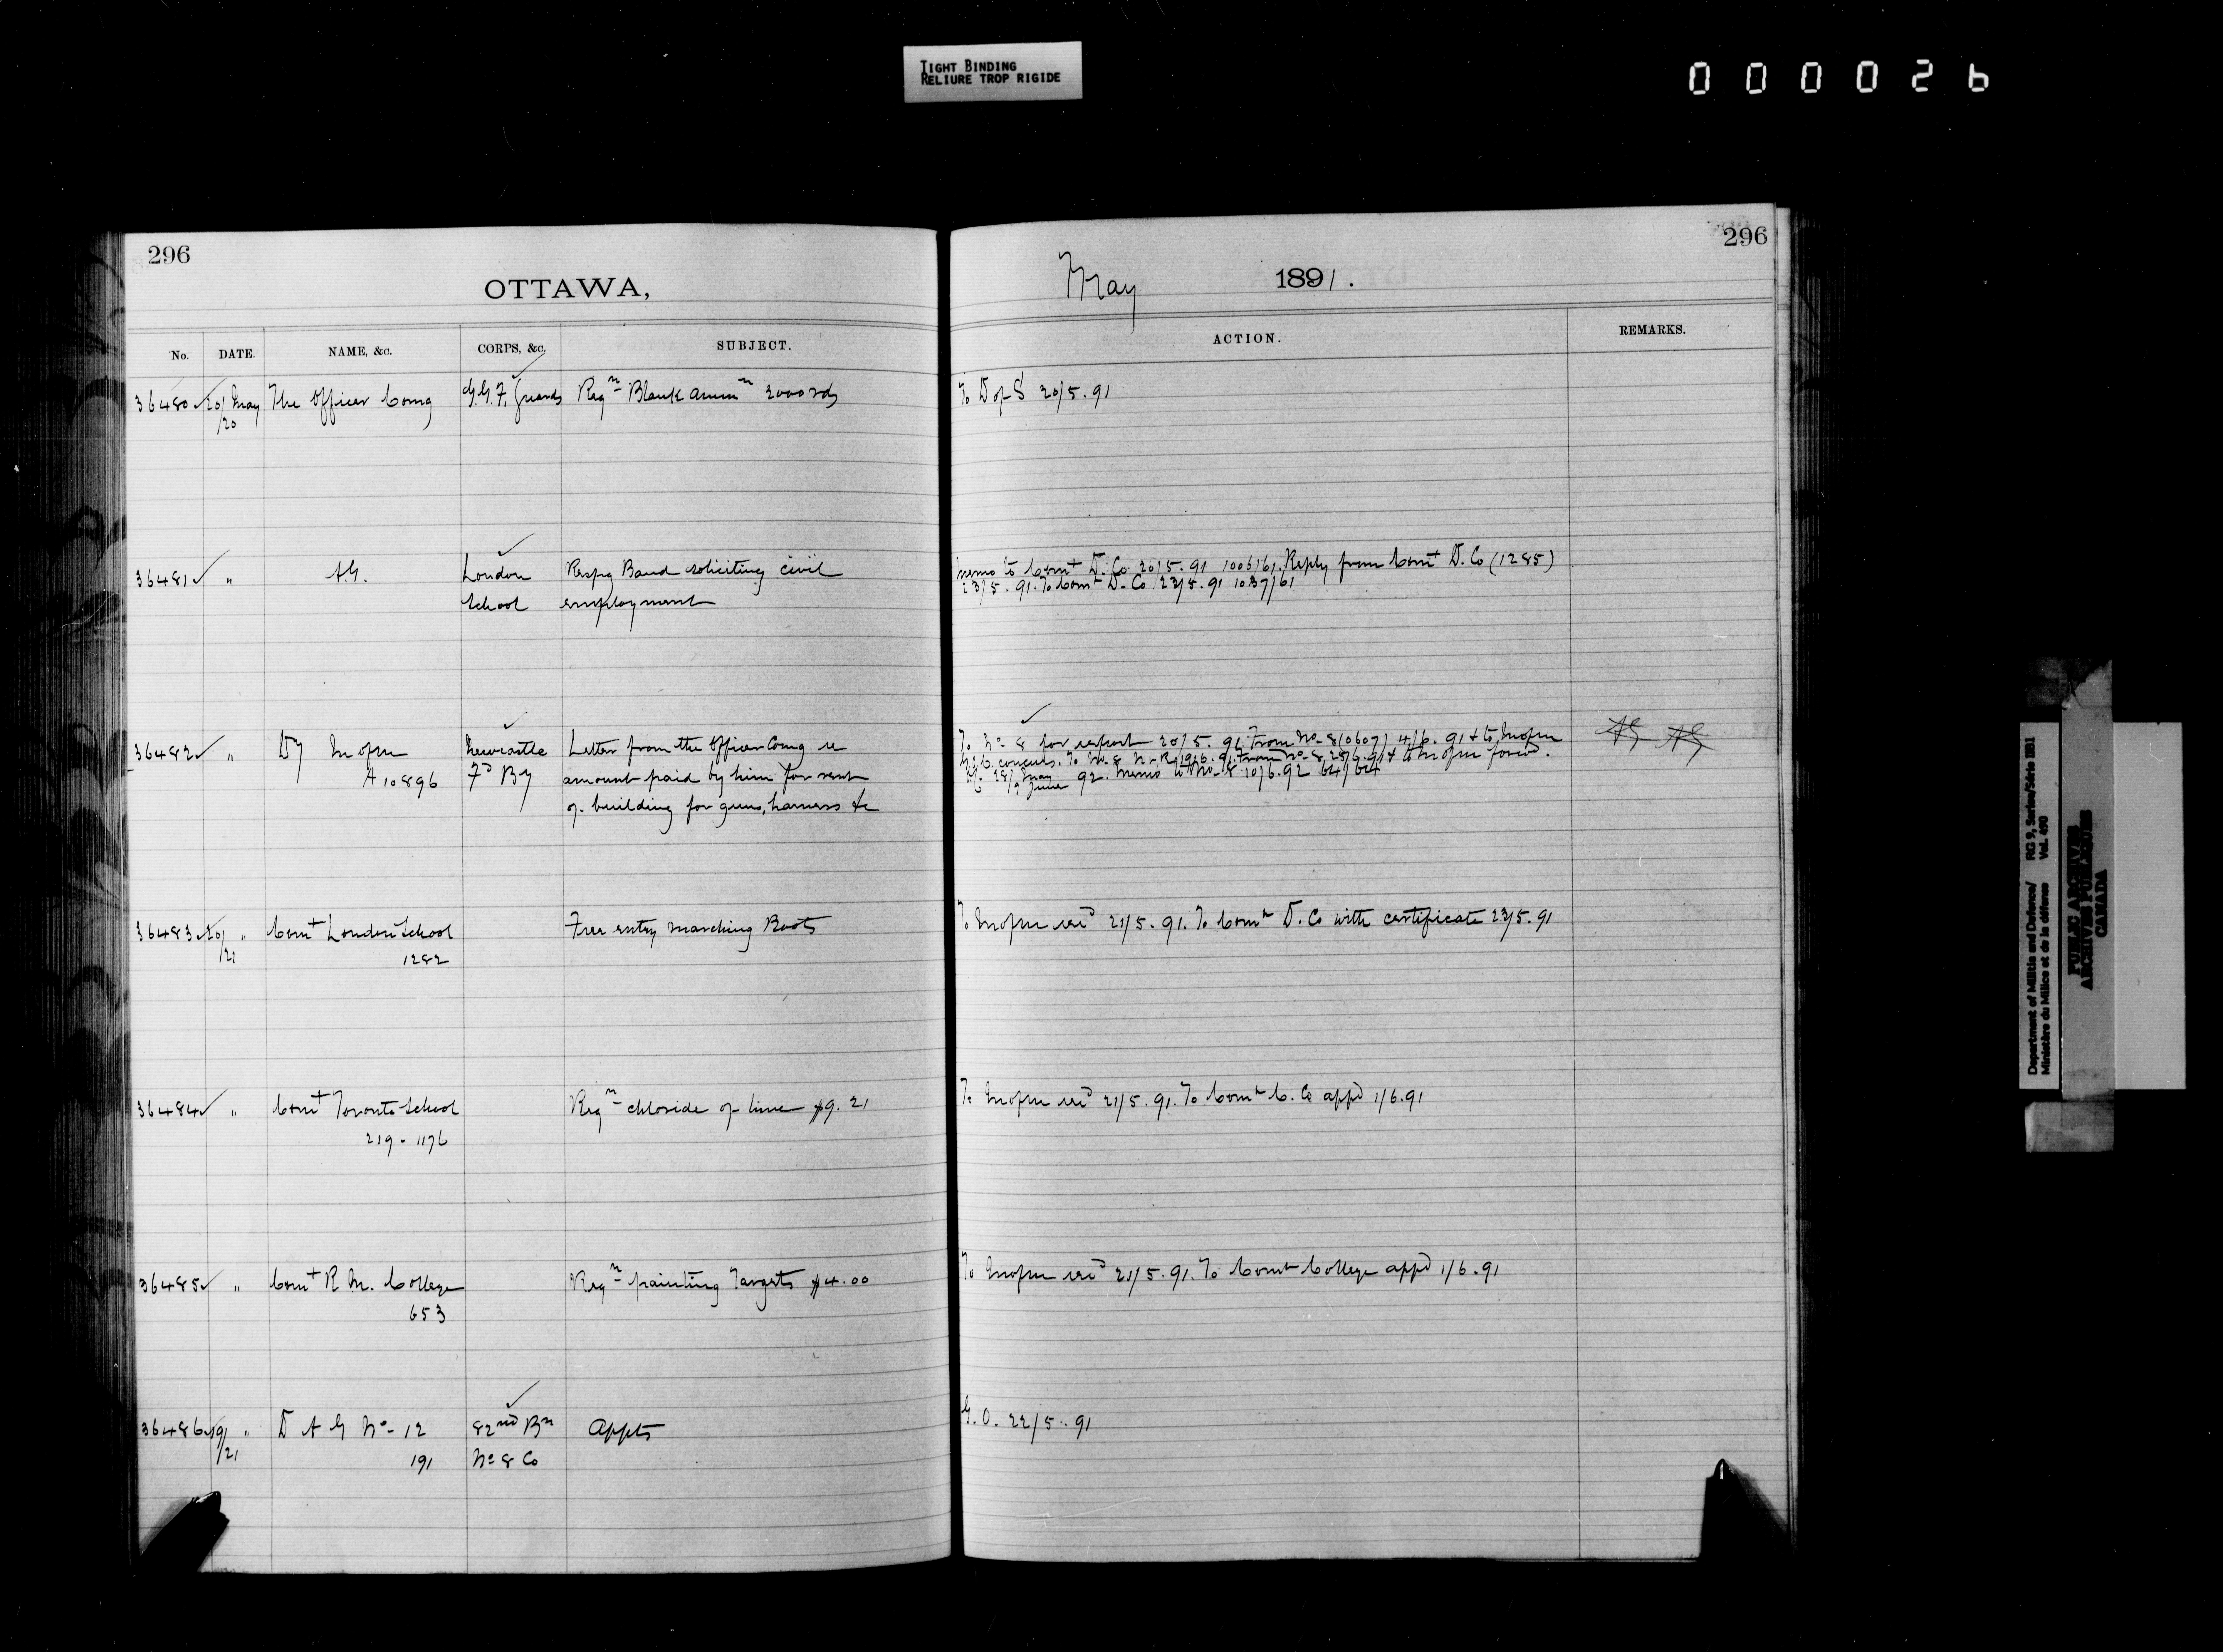 TIGHT BINDING
RELIURE TROP RIGIDE
000026
296
OTTAWA,
No. DATE. NAME, &c. CORPS, &c. SUBJECT.
36480 20/ May The Officer Comg G.G.F. Guards Reqn Blank ammn 2000 rds
/20
36481 " A.G. London Respg Band soliciting civil
School employment
36482 " Dy M of M Newcastle Letter from the Officer Comg re
A 10896 Fd By amount paid by him for rent
of building for guns, harness &c
36483 20/ " Comt London School Free entry marching Boots
/21 1282
36484 " Comt Toronto School Reqn chloride of lime $9.21
219-1176
36485 " Comt R M. College Reqn painting Targets $4.00
653
36486 19/ " D A G No 12 82nd Bn Appts
/21 191 No 8 Co
296
May 1891.
ACTION. REMARKS.
To D of S 20/5.91
memo to Comt D. Co 20/5.91 1006/61. Reply from Comt D. Co (1285)
23/5.91. To Comt D. Co 23/5.91 1037/61
To No 8 for report 20/5.91. From No 8 (0607) 4/6.91 & to M of M AG AG
concurs. To No 8 19/6.91. From No 8/25/6.91 & to M of M forwd.
28/ May 92. Memo to No 8 10/6.92 64/64
/9 June
To M of M red 21/5.91. To Comt D. Co with certificate 23/5.91
To M of M red 21/5.91. To Comt C. Co appd 1/6.91
To M of M red 21/5.91. To Comt College appd 1/6.91
G.O. 22/5.91
Department of Militia and Defence/ RG 9, Series/Série IIB1
Ministère du Milice et de la défense Vol. 490
PUBLIC ARCHIVES
ARCHIVES PUBLIQUES
CANADA